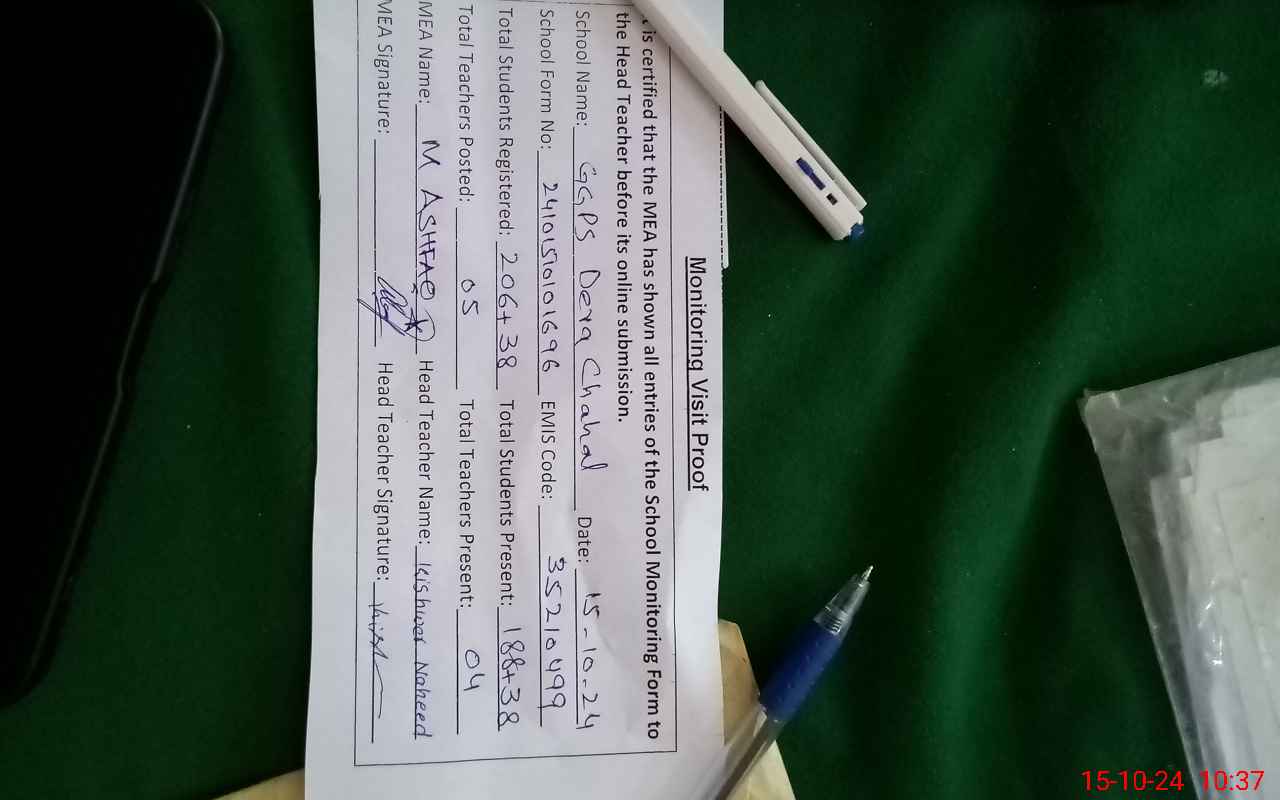 Monitoring Visit Proof
is certified that the MEA has shown all entries of the School Monitoring Form to
the Head Teacher before its online submission.
School Name: GGPS Dera Chahal Date: 15-10-24
School Form No: 24101510101696 EMIS Code: 35210499
Total Students Registered: 206+38 Total Students Present: 188+38
Total Teachers Posted: 05 Total Teachers Present: 04
MEA Name: M ASHFAQ Head Teacher Name: Kishwar Naheed
MEA Signature: Head Teacher Signature:
15-10-24 10:37